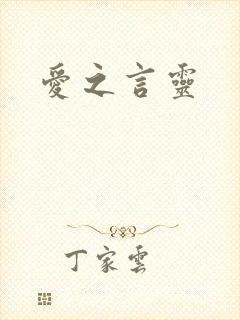 愛之言靈
丁家雲